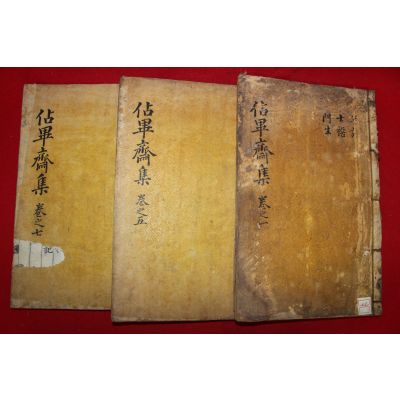 佔畢齋集 卷之一
士諧
門生
佔畢齋集 卷之五
佔畢齋集 卷之七
記